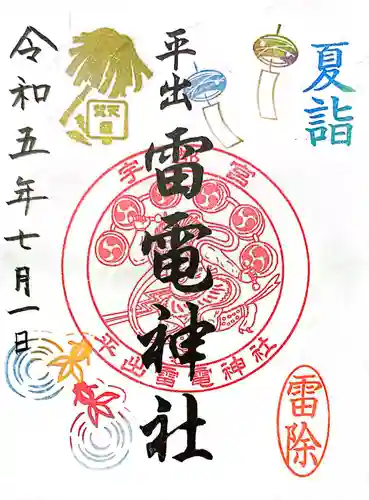 夏詣
平出
雷電神社
令和五年七月一日
宇都宮
平出雷電神社
雷除